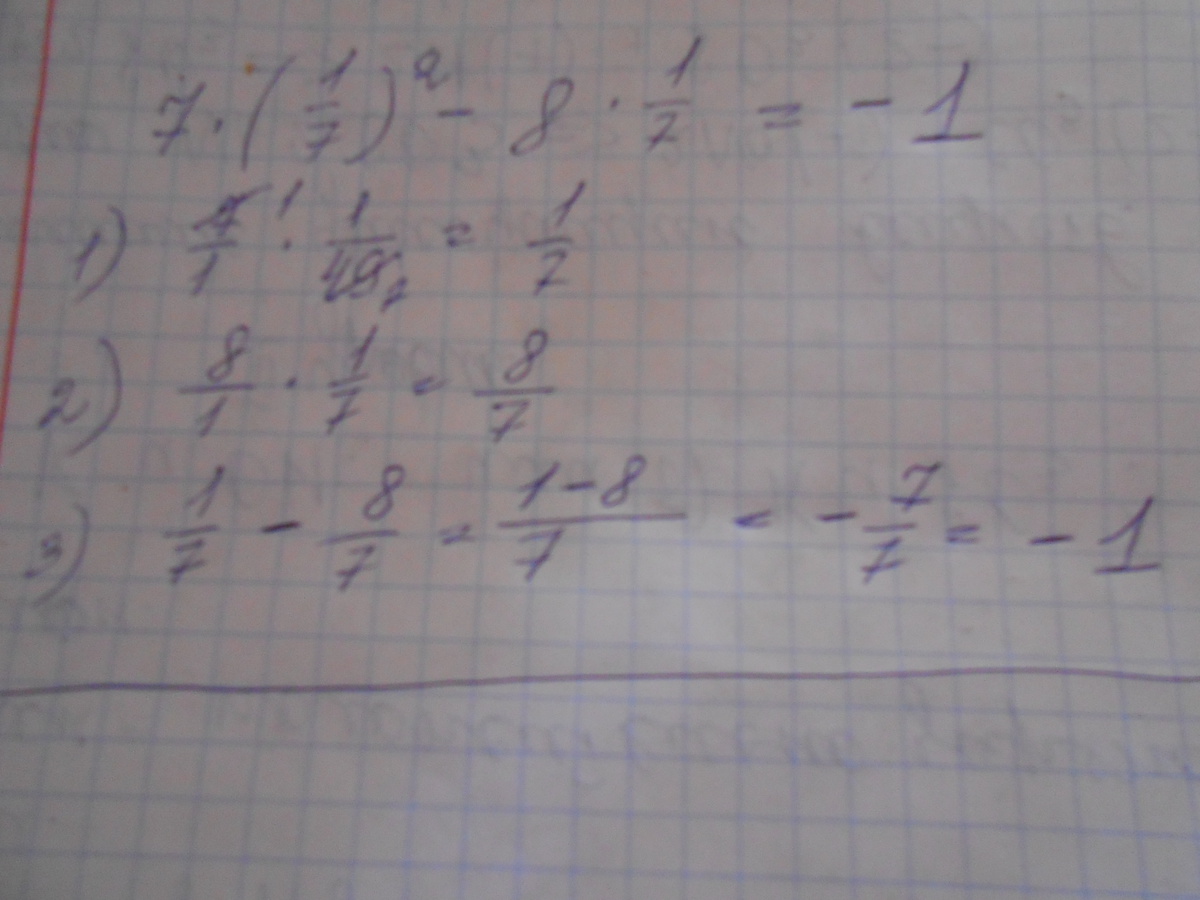 7 · (1/7)² - 8 · 1/7 = - 1
1) 7 1/1 · 1/49 7 = 1/7
2) 8/1 · 1/7 = 8/7
3) 1/7 - 8/7 = 1-8/7 = - 7/7 = - 1